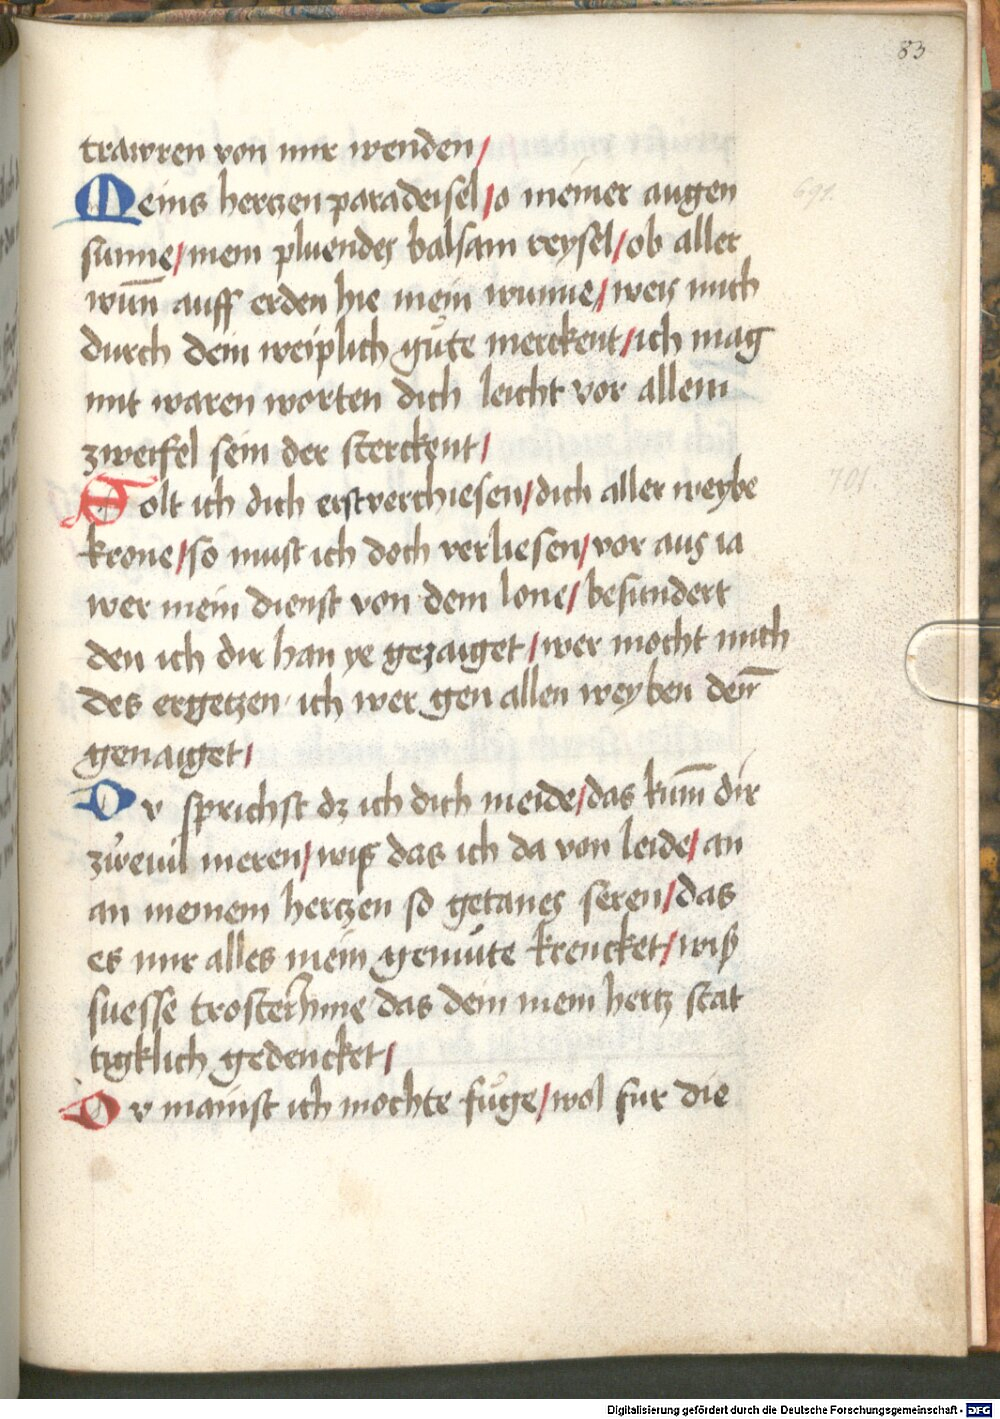 83
trawren von mir wenden /
Meins hertzen paradeisel / o meiner augen
691.
sunne / mein pluendes balsam reysel / ob aller
wun̄ auff erden hie mein wunne / weis mich
durch dein weiplich gůte merckent / ich mag
mit waren worten dich leicht vor allem
zweifel sein der sterckent /
Solt ich dich erst verchiesen / dich aller weybe
701.
krone / so must ich doch verliesen / vor aus ia
wer mein dienst von dem lone / besundert
den ich dir han ye gezaiget / wer mocht mich
des ergetzen ich wer gen allen weyben den̄
genaiget /
Dv sprichst dz ich dich meide / das kum̄ dir
zweiuil meren / wiß das ich da von leide / an
an meinem hertzen so getanes seren / das
es mir alles mein gemúte krencket / wiß
suesse trosterinne das dein mein hertz stat
tigklich gedencket /
Dv mainst ich mochte fůge / wol fur die
Digitalisierung gefördert durch die Deutsche Forschungsgemeinschaft - DFG